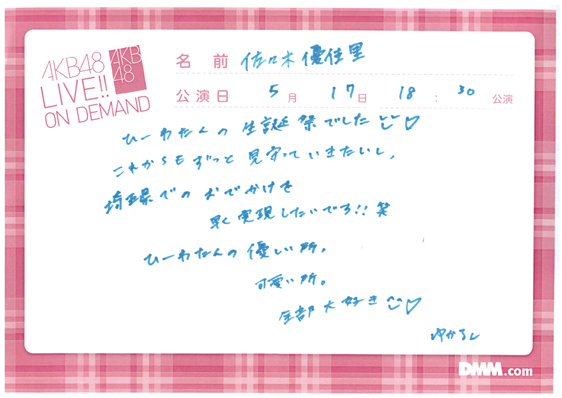 AKB48
LIVE!!
ON DEMAND
AKB
48
名前 佐々木優佳里
公演日 5月17日 18:30公演
ひーわたんの生誕祭でした♡
これからもずっと見守っていきたいし、
埼玉県でのおでかけを
早く実現したいです!!笑
ひーわたんの優しい所。
可愛い所。
全部大好き♡
ゆかるん
DMM.com